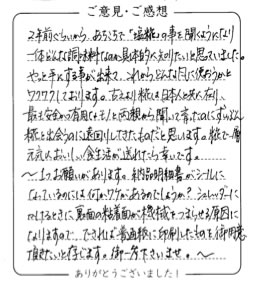 ご意見・ご感想
2年前ぐらいから、あちこちで"塩糀"の事を聞くようになり
一体どんな調味料なのか具体的に知りたいと思っていました。
やっと手にする事が出来て、これからどんな風に使おうかと
ワクワクしております。古より糀は日本人と共に有り、
最も安全で有用なモノと両親から聞いて育ったのにずいぶん
糀と出会うのに遠回りしてきたものだと思います。糀で一層
元気においしい食生活が送れたら幸いです。
〜一つお願いがあります。納品明細書がシールに
なっているのには何かワケがあるのでしょうか？シュレッダーに
かけるときに裏面の粘着面が機械をつまらせる原因に
なりますので、できれば普通紙に印刷したものを御用意
頂きたいと存じます。御一考下さいませ。〜
ありがとうございました！